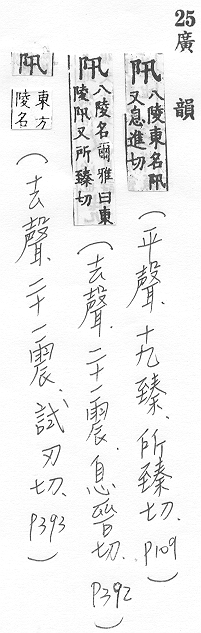 25廣韻
阠八陵東名阠又息進切
(平聲、十九臻、所臻切、P109)
阠八陵名爾雅曰東陵阠又所臻切
(去聲、二十一震、息晉切、P392)
阠東方陵名
(去聲、二十一震、試刃切、P393)